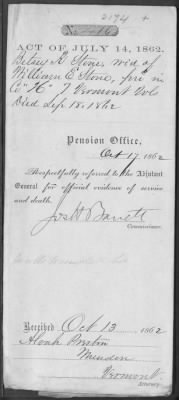 2194 +
ACT OF JULY 14, 1862.
Betsey A. Stone, wid of
William E Stone, pri in
Co "H" 7 Vermont Vols
Died Sep 18. 1862
Pension Office,
Oct 17, 1862
Respectfully referred to the Adjutant
General for official evidence of service
and death.
Jos H Barrett
Commissioner.
Received Oct 13 1862
Mendon
Vermont
Attorney.